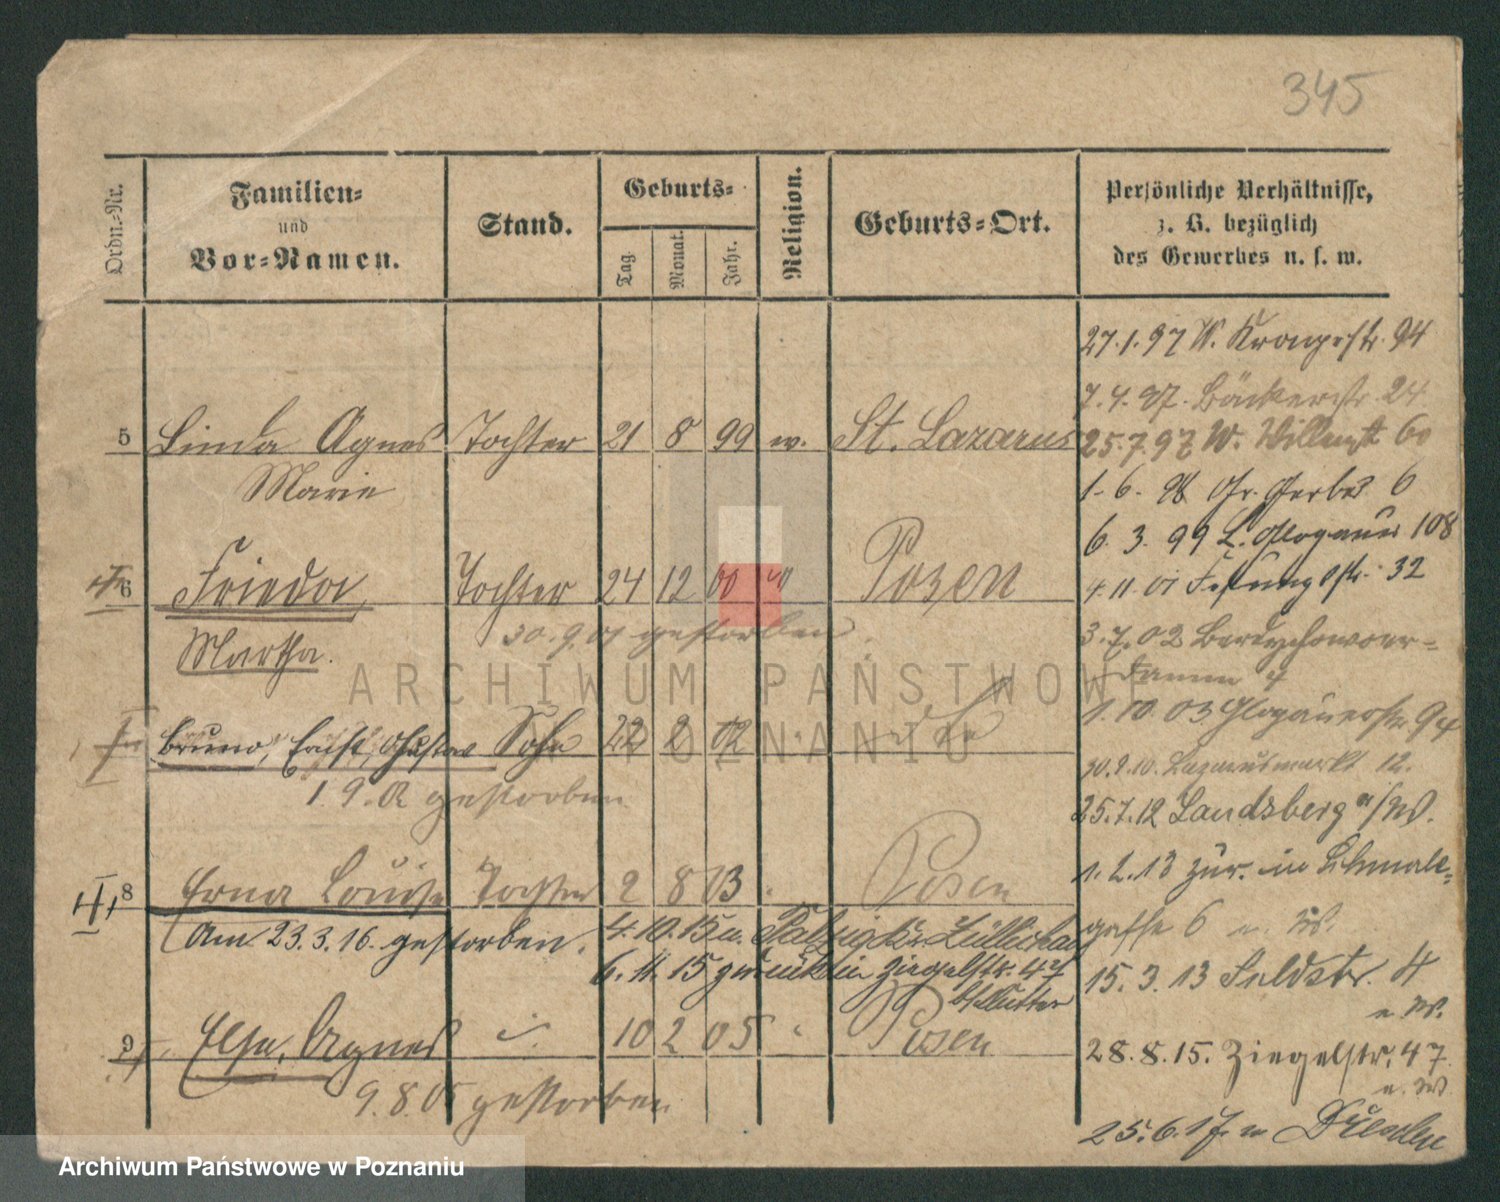 345
Ordn.-Nr.
Familien-
und
Vor-Namen.
Stand.
Geburts-
Tag.
Monat.
Jahr.
Religion.
Geburts-Ort.
Persönliche Verhältnisse,
z. B. bezüglich
des Gewerbes u. s. w.
5 Linda Agnes Tochter 21 8 99 w. St. Lazarus
Marie
6 Frieda Tochter 24 12 00 Posen
30.9.01 gestorben.
Martha.
Bruno, Ernst, Gustav Sohn 22 2 02
1.9.02 gestorben
8 Erna Louise Tochter 2 8 03 Posen
Am 23.3.16. gestorben. 4.10.15 n. Züllichau
6.11.15 zurück in Ziegelstr. 47
b/Mutter
9 Elsa, Agnes 10 2 05 Posen
9.8.05 gestorben
27.1.97 W. 94
7.4.97. Bäckerstr. 24
25.7.97 W. 60
1.6.98 Gr. Gerber 6
6.3.99 L. Glogauer 108
4.11.01 Festungsstr. 32
3.7.02 Berdychowoer-
Damm 4
1.10.03 Glogauerstr. 94
30.9.10. Lazarusmarkt 12.
25.7.12 Landsberg a/W.
1.2.13 zur. in Schmale-
gasse 6
15.3.13 Feldstr. 4
28.8.15. Ziegelstr. 47
25.6.17. n Dresden
ARCHIWUM PAŃSTWOWE
W POZNANIU
Archiwum Państwowe w Poznaniu